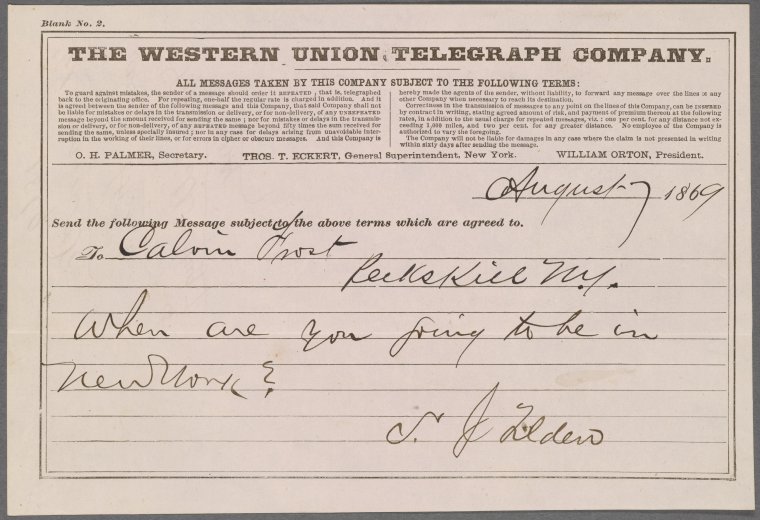 Blank No. 2.
THE WESTERN UNION TELEGRAPH COMPANY.
ALL MESSAGES TAKEN BY THIS COMPANY SUBJECT TO THE FOLLOWING TERMS:
To guard against mistakes, the sender of a message should order it REPEATED; that is, telegraphed
back to the originating office. For repeating, one-half the regular rate is charged in addition. And it
is agreed between the sender of the following message and this Company, that said Company shall not
be liable for mistakes or delays in the transmission or delivery, or for non-delivery, of any UNREPEATED
message beyond the amount received for sending the same; nor for mistakes or delays in the transmis-
sion or delivery, or for non-delivery, of any REPEATED message beyond fifty times the sum received for
sending the same, unless specially insured; nor in any case for delays arising from unavoidable inter-
ruption in the working of their lines, or for errors in cipher or obscure messages. And this Company is
hereby made the agents of the sender, without liability, to forward any message over the lines of any
other Company when necessary to reach its destination.
Correctness in the transmission of messages to any point on the lines of this Company, can be INSURED
by contract in writing, stating agreed amount of risk, and payment of premium thereon at the following
rates, in addition to the usual charge for repeated messages, viz.: one per cent. for any distance not ex-
ceeding 1,000 miles, and two per cent. for any greater distance. No employee of the Company is
authorized to vary the foregoing.
The Company will not be liable for damages in any case where the claim is not presented in writing
within sixty days after sending the message.
O. H. PALMER, Secretary. THOS. T. ECKERT, General Superintendent, New York. WILLIAM ORTON, President.
August 7 1869
Send the following Message subject to the above terms which are agreed to.
To Calvin Frost
Peekskill N.Y.
When are you going to be in
New York?
S J Tilden